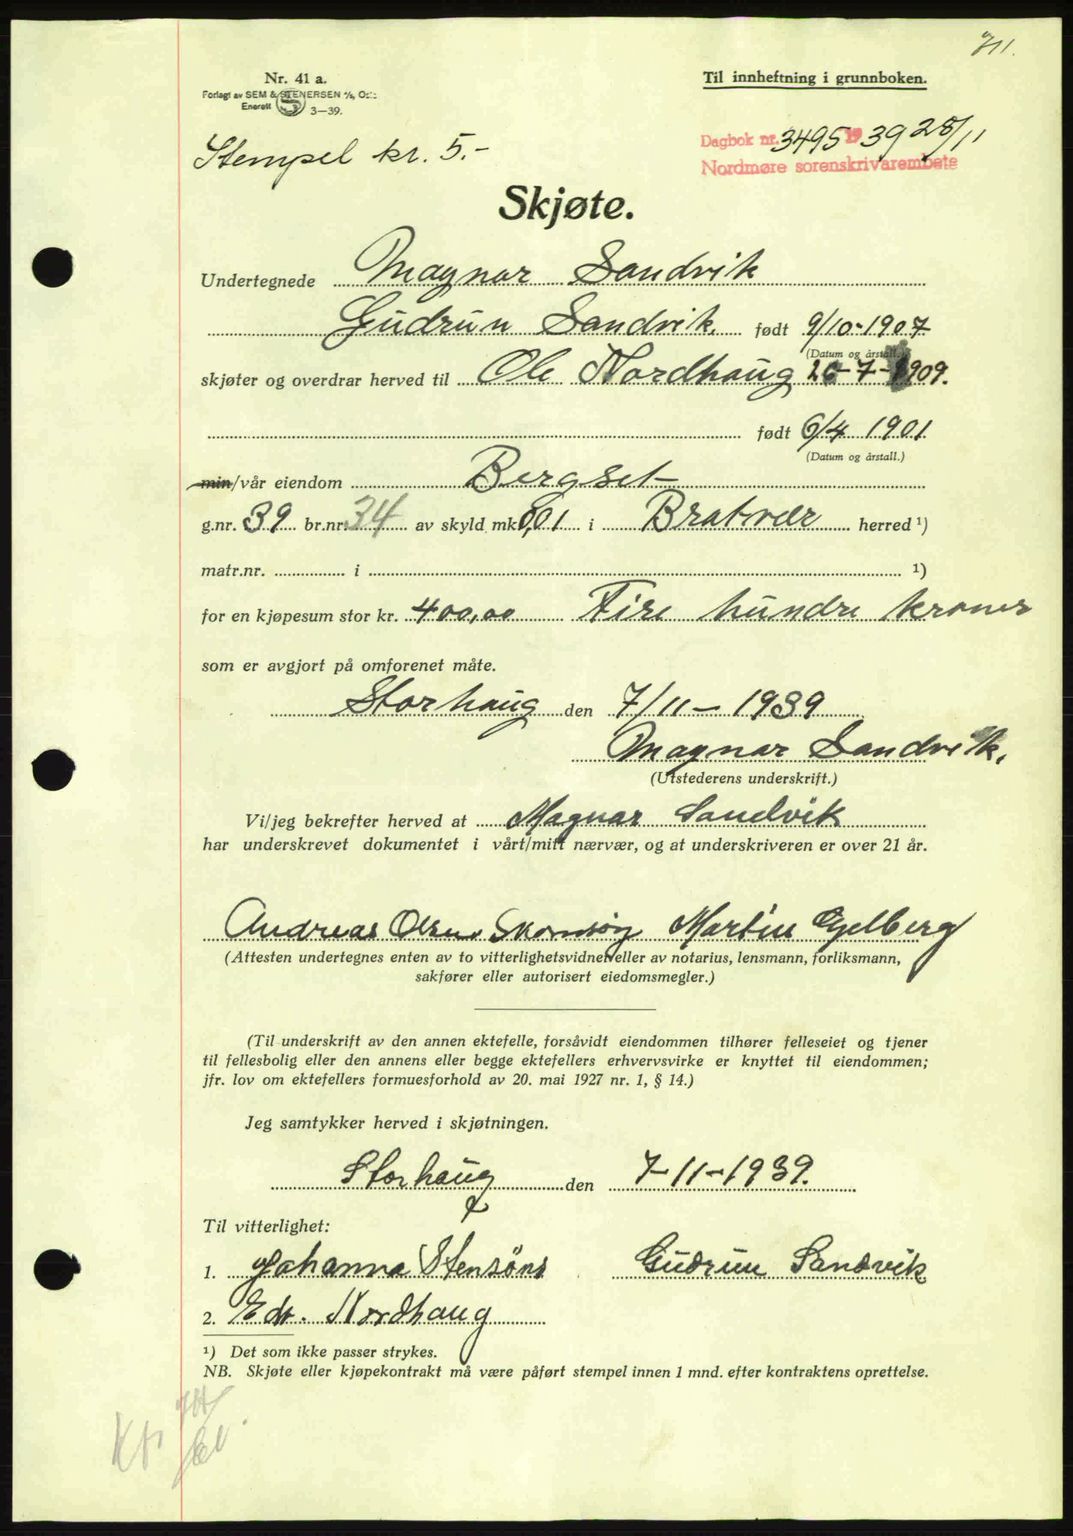 711.
Nr. 41 a.
Forlagt av SEM & STENERSEN A/S, Oslo
Enerett 3—39.
Til innheftning i grunnboken.
Stempel kr. 5.-
Dagbok nr. 3495 19 39 28/11
Nordmøre sorenskrivarembete
Skjøte.
Undertegnede Magnar Sandvik
Gudrun Sandvik født 9/10-1907
(Datum og årstall.)
skjøter og overdrar herved til Ole Nordhaug 26-7-1909.
født 6/4 1901
(Datum og årstall.)
min/vår eiendom Bergset
g.nr. 39 br.nr. 34 av skyld mk 0,01 i Bratvær herred ¹)
matr.nr. i ¹)
for en kjøpesum stor kr. 400,00 Fire hundre kroner
som er avgjort på omforenet måte.
Storhaug den 7/11-1939
Magnar Sandvik.
(Utstederens underskrift.)
Vi/jeg bekrefter herved at Magnar Sandvik
har underskrevet dokumentet i vårt/mitt nærvær, og at underskriveren er over 21 år.
Andreas Olsen Skomsøy Martin Gjelberg
(Attesten undertegnes enten av to vitterlighetsvidner eller av notarius, lensmann, forliksmann,
sakfører eller autorisert eiedomsmegler.)
(Til underskrift av den annen ektefelle, forsåvidt eiendommen tilhører felleseiet og tjener
til fellesbolig eller den annens eller begge ektefellers erhvervsvirke er knyttet til eiendommen;
jfr. lov om ektefellers formuesforhold av 20. mai 1927 nr. 1, § 14.)
Jeg samtykker herved i skjøtningen.
Storhaug den 7-11-1939.
Til vitterlighet:
1. Johanna Stensøns Gudrun Sandvik
2. Edv. Nordhaug
¹) Det som ikke passer strykes.
NB. Skjøte eller kjøpekontrakt må være påført stempel innen 1 mnd. efter kontraktens oprettelse.